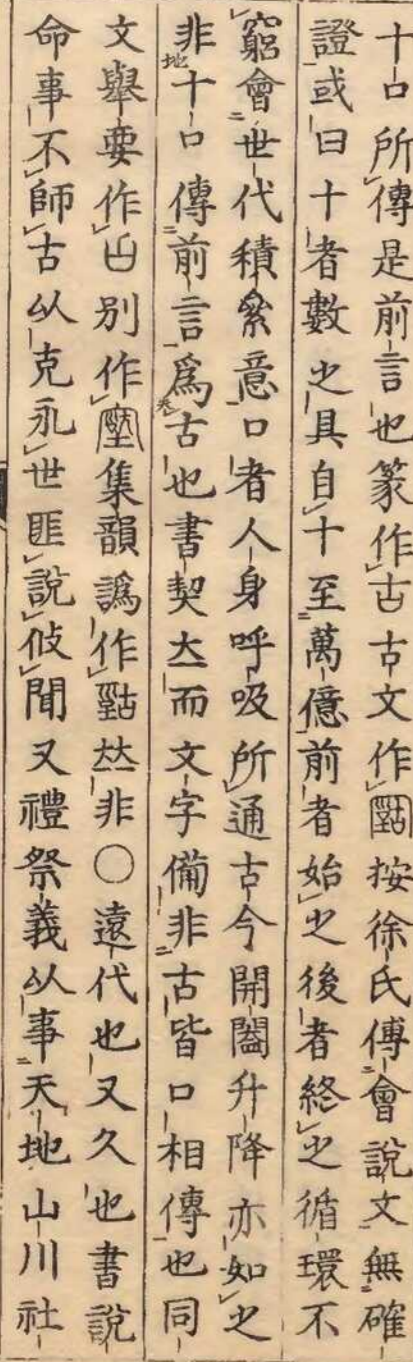 十口所傳是前言也篆作古古文作按徐氏傅會說文無確
證或曰十者數之具自十至萬億前者始之後者終之循環不
窮會世代積絫意口者人身呼吸所通古今開闔升降亦如之
非十口傳前言爲古也書契立而文字備非古皆口相傳也同
文舉要作別作集韻譌作竝非○遠代也又久也書說
命事不師古以克永世匪說攸聞又禮祭義以事天地山川社